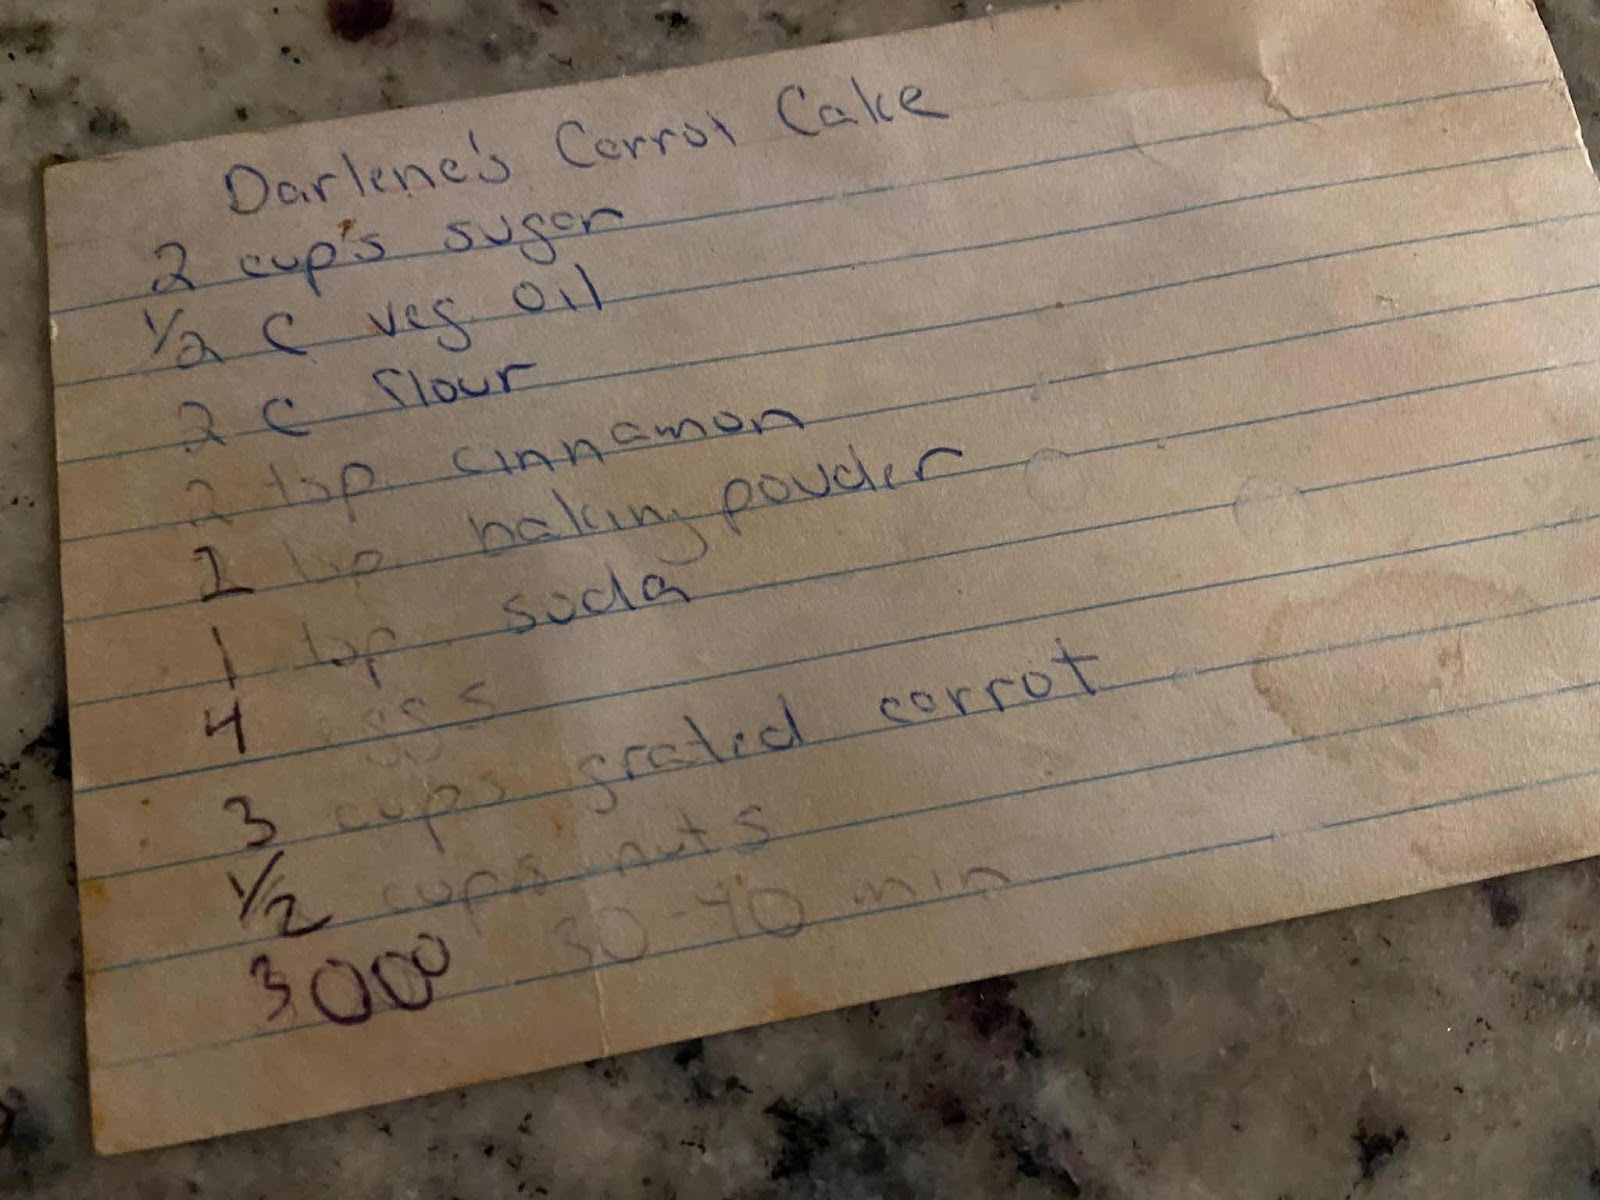 Darlene's Carrot Cake
2 cup's sugar
1/2 C veg. Oil
2 C flour
2 tsp cinnamon
1 tsp. baking powder
1 tsp soda
4 eggs
3 cups grated carrot
1/2 cups nuts
300° 30-40 min